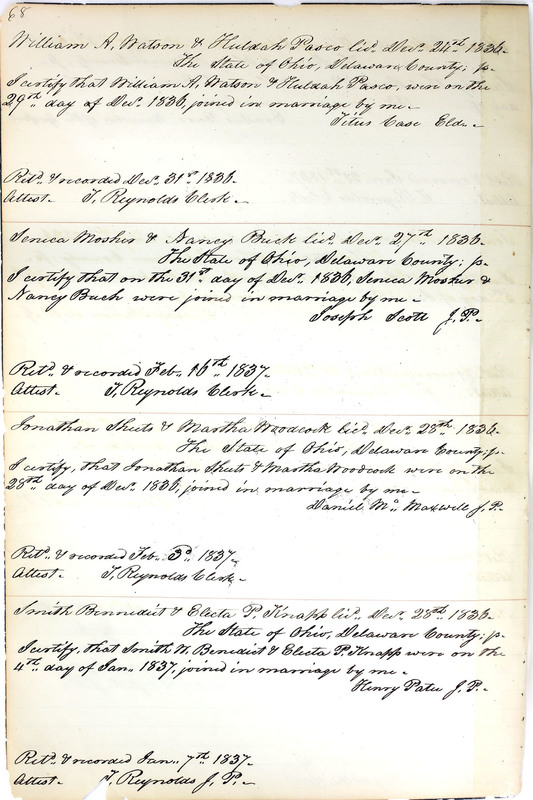 68
William A. Watson & Huldah Pasco lic. Dec. 24th 1836.
The State of Ohio, Delaware County; ss.
I certify that William A. Watson & Huldah Pasco, were on the
29th day of Dec. 1836, joined in marriage by me.
Titus Case Eld.
Retd. & recorded Dec. 31st 1836.
Attest. T. Reynolds Clerk.
Seneca Mosher & Nancy Buck lic. Dec. 27th 1836.
The State of Ohio, Delaware County; ss.
I certify that on the 31st day of Dec. 1836, Seneca Mosher &
Nancy Buck were joined in marriage by me.
Joseph Scott J.P.
Retd. & recorded Feb. 16th 1837.
Attest. T. Reynolds Clerk.
Jonathan Sheets & Martha Woodcock lic. Dec. 28th 1836.
The State of Ohio, Delaware County; ss.
I certify, that Jonathan Sheets & Martha Woodcock were on the
28th day of Dec. 1836, joined in marriage by me.
Daniel Mc. Maxwell J.P.
Retd. & recorded Feb. 3d. 1837.
Attest. T. Reynolds Clerk.
Smith Bennedict & Electa P. Knapp lic. Dec. 28th 1836.
The State of Ohio, Delaware County; ss.
I certify, that Smith H. Benedict & Electa P. Knapp were on the
4th. day of Jan. 1837, joined in marriage by me.
Henry Patee J.P.
Retd. & recorded Jan. 7th 1837.
Attest. T. Reynolds J.P.